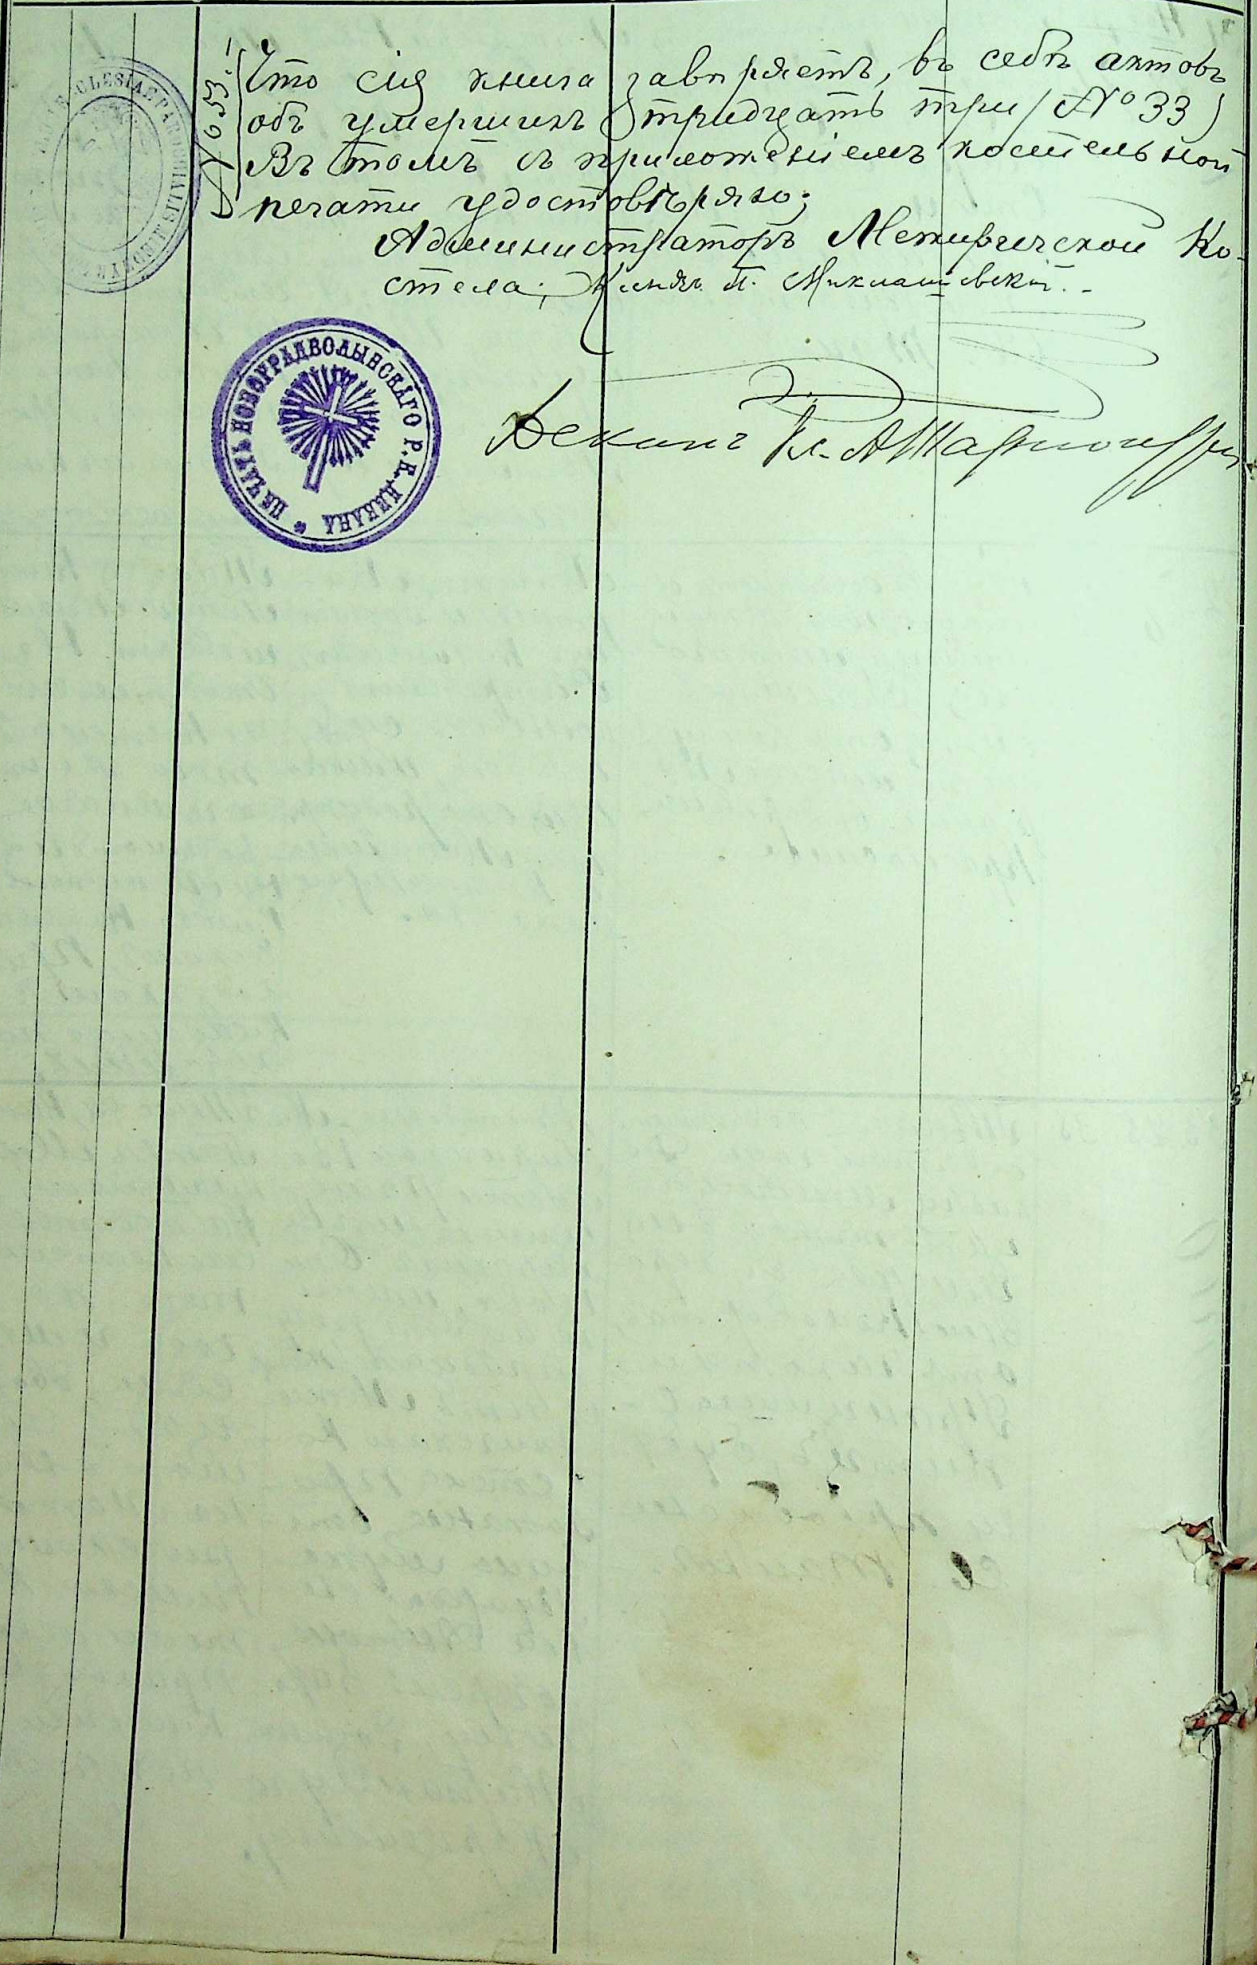 № 53.
Что сія книга заверяетъ, въ себѣ актовъ
объ умершихъ тридцать три (№ 33)
Въ томъ съ приложеніемъ костельной
печати удостовѣряю;
Администраторъ Межиричской Ко-
стела; Ксендзъ П. Миклашевскій.
ПЕЧАТЬ НОВОГРАДВОЛЫНСКАГО Р. К. ДЕКАНА
Деканъ Кс. А